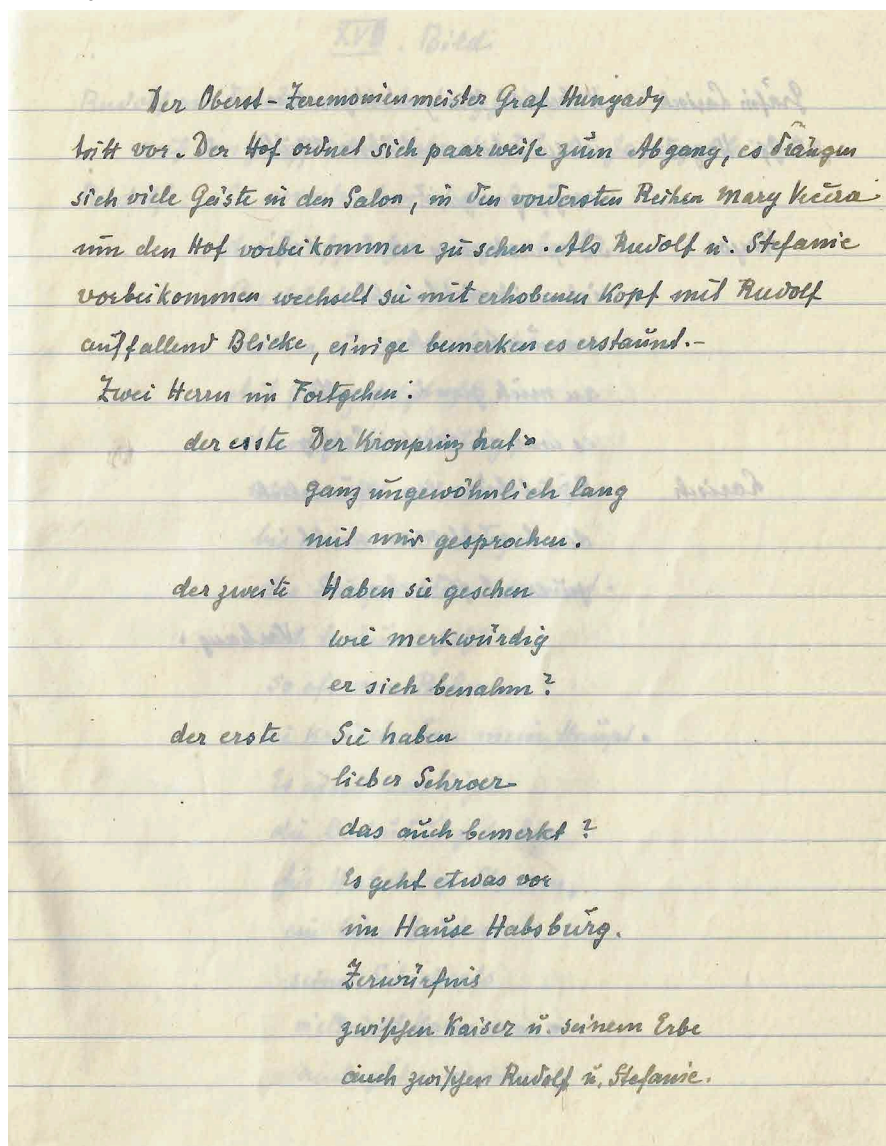 Der Oberst-Zeremonienmeister Graf Hunyady
tritt vor. Der Hof ordnet sich paarweise zum Abgang, es drängen
sich viele Gäste in den Salon, in den vordersten Reihen Mary Vecera
um den Hof vorbeikommen zu sehen. Als Rudolf u. Stefanie
vorbeikommen wechselt sie mit erhobenen Kopf mit Rudolf
auffallend Blicke, einige bemerken es erstaunt.-
Zwei Herrn im Fortgehen:
der erste Der Kronprinz hat
ganz ungewöhnlich lang
mit mir gesprochen.
der zweite Haben sie gesehen
wie merkwürdig
er sich benahm?
der erste Sie haben
lieber Schroer
das auch bemerkt?
Es geht etwas vor
im Hause Habsburg.
Zerwürfnis
zwischen Kaiser u. seinem Erbe
auch zwischen Rudolf u. Stefanie.